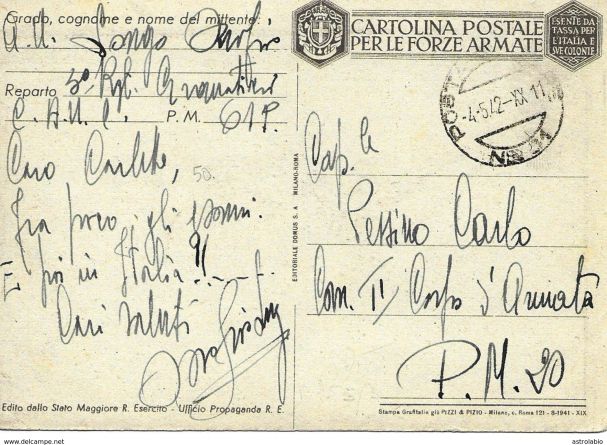 Grado, cognome e nome del mittente:
A.U. Longo Onofrio
Reparto 3° Rgt. Granatieri
C.A.U.C. P.M. 61 P.
Caro Carletto,
50.
Fra poco gli esami.
E poi in Italia!!
Cari saluti
CARTOLINA POSTALE
PER LE FORZE ARMATE
ESENTE DA
TASSA PER
L'ITALIA E
SVE COLONIE
POSTA
-4-5/2-XX 11
N° 21
EDITORIALE DOMUS S. A. MILANO-ROMA
Cap. le
Pessino Carlo
Com. II° Corpo d'Armata
P.M. 20
Edito dallo Stato Maggiore R. Esercito - Ufficio Propaganda R. E.
Stampa Grafitalia già PIZZI & PIZIO - Milano, c. Roma 121 - 8-1941 - XIX
www.delcampe.net
astrolabio